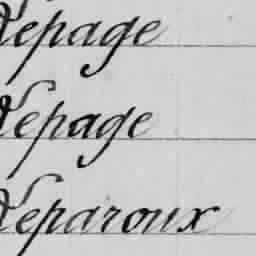 Lepage
Lepage
Leparoux